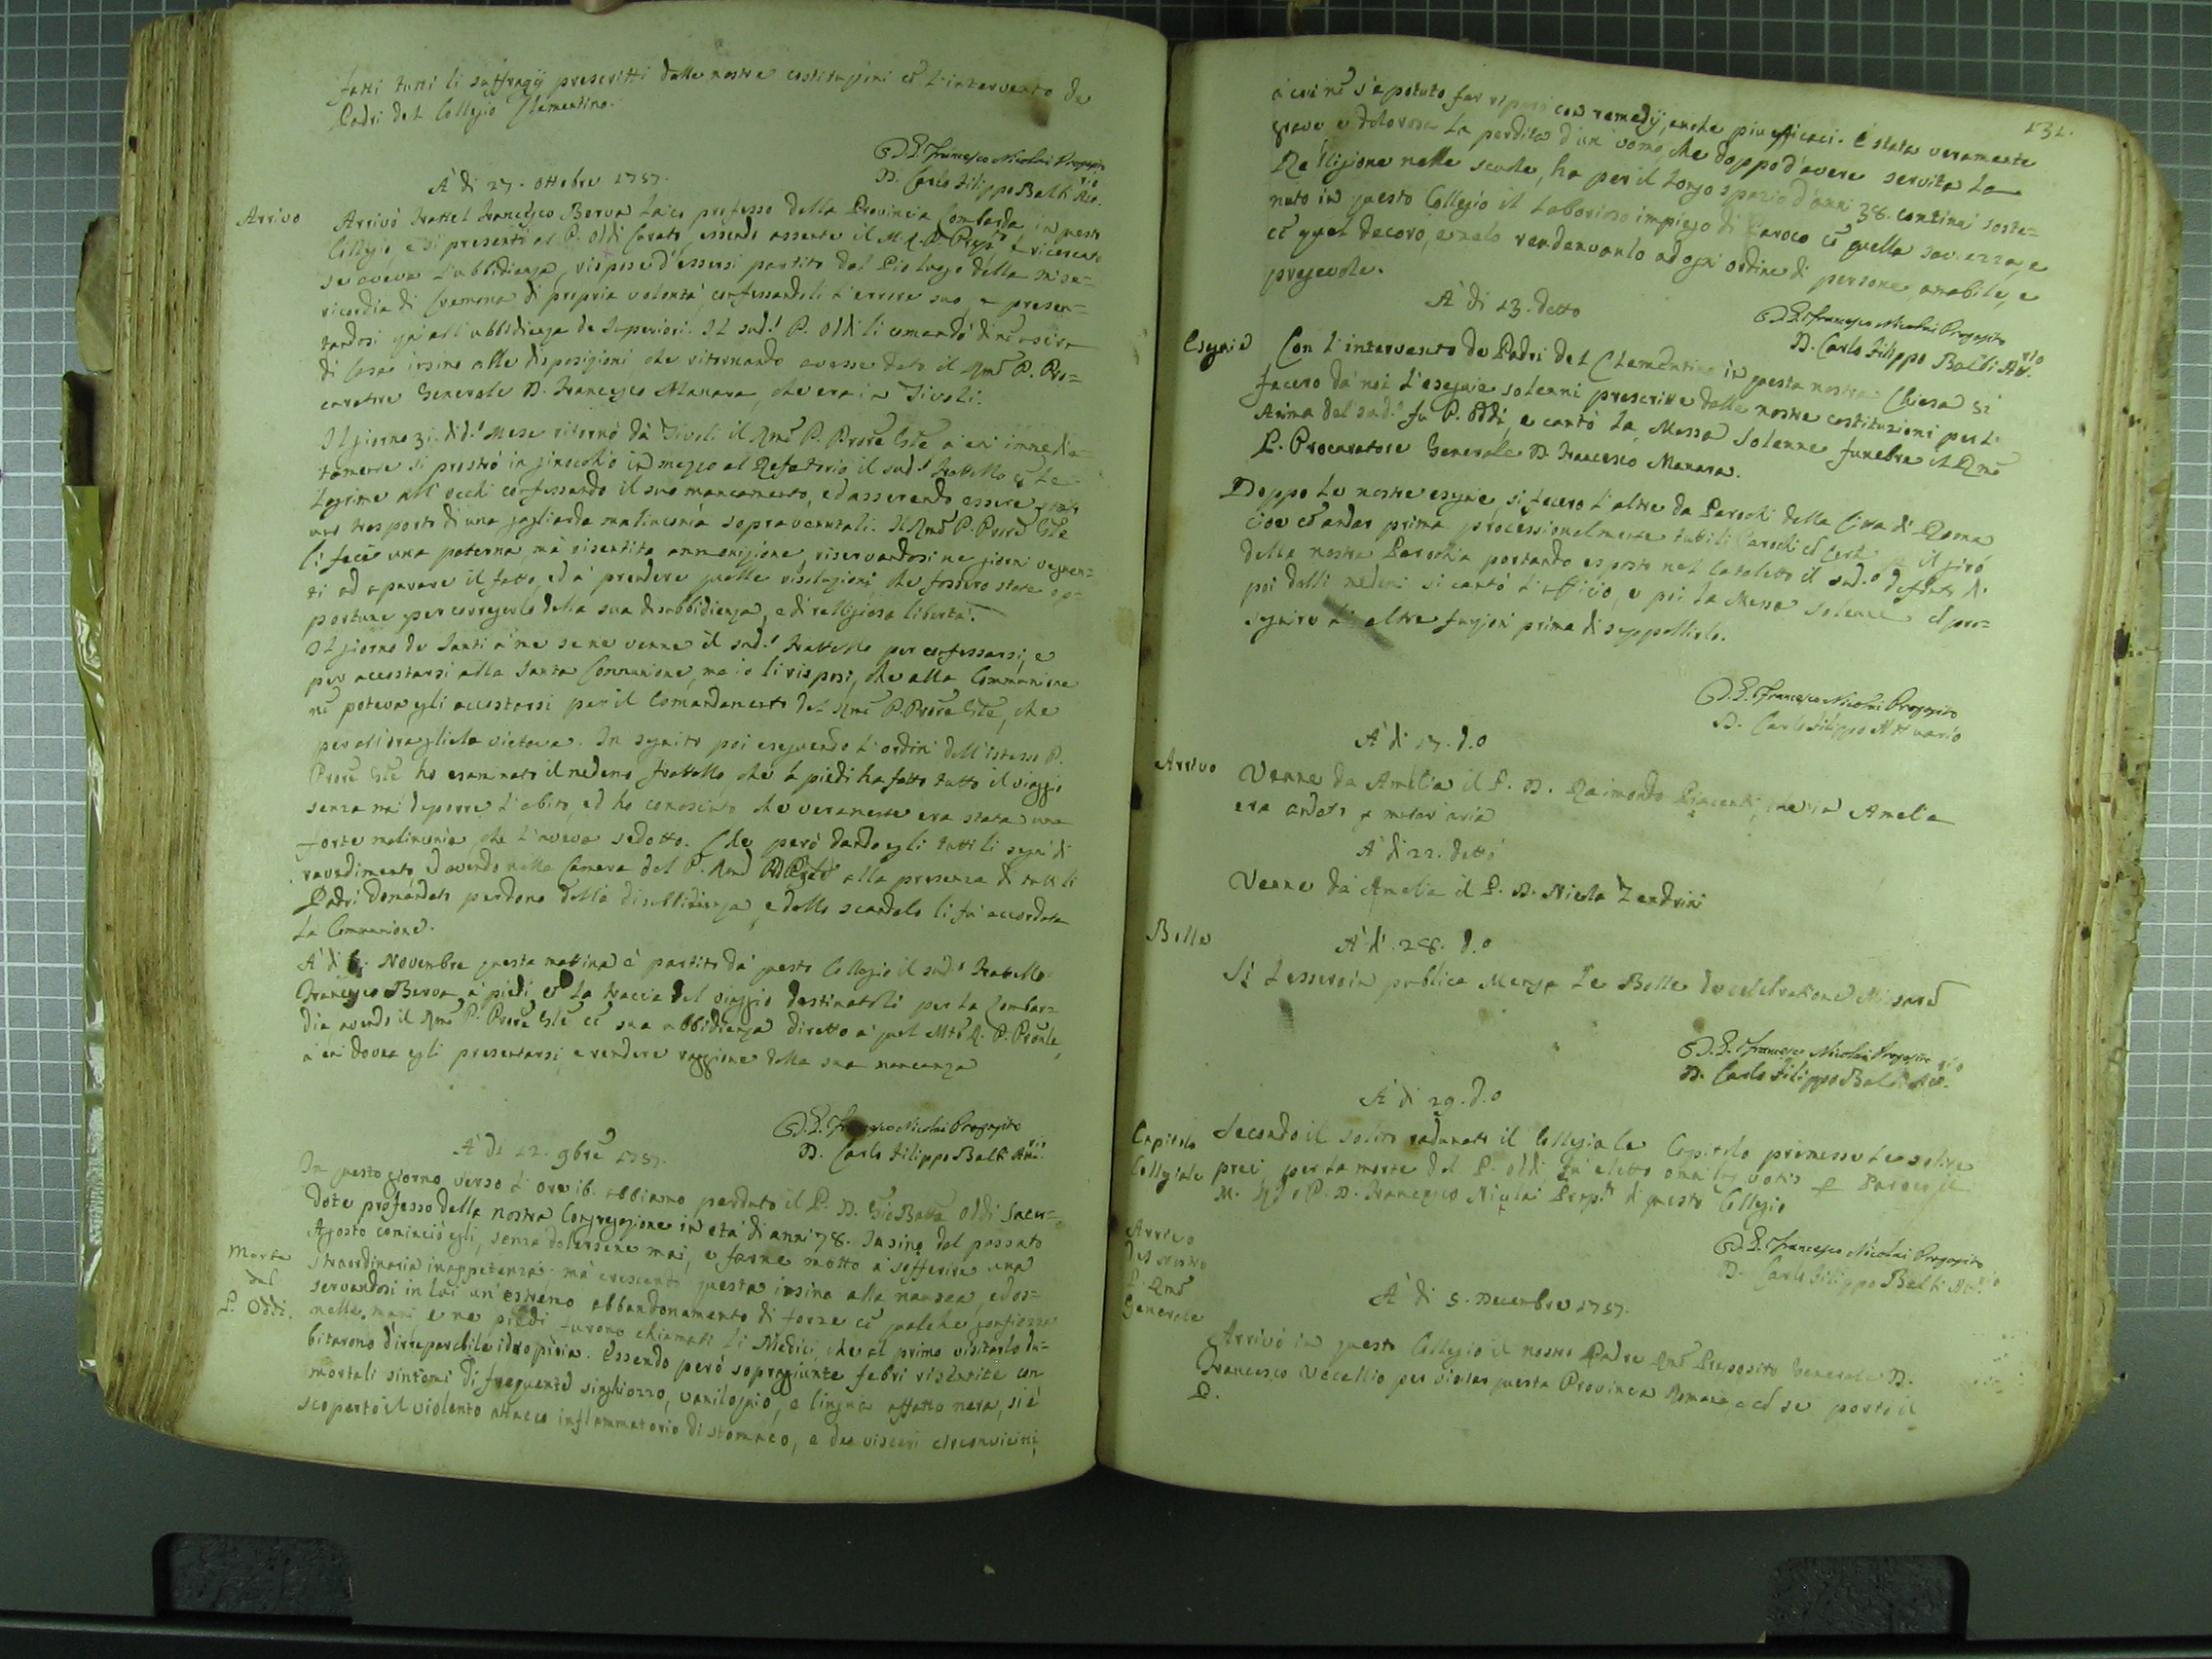 fatti tutti li suffragij prescritti dalle nostre costituzioni cō l'intervento de
Padri del Collegio Clementino.
D. F. Francesco Nicolai Preposito
D. Carlo Filippo Balbi Att.rio
A' di 27. Ottobre 1757.
Arrivo
Arrivò Fratel Francesco Berva Laico professo della Provincia Lombarda in questo
Collegio, e si presentò al P. Oddi Curato, essendo assente il M. R. P. Prep.to e ricercato
se aveva l'ubbidienza, rispose d'essersi partito dal Pio luogo della Mise=
ricordia di Cremona di propria volontà, confessandoli l'errore suo, e presen=
tandosi quà all'ubbidienza de Superiori. Il sud.o P. Oddi li comandò di nō uscire
di Casa insino alle disposizioni, che ritornando avesse dato il Rmō P. Pro=
curatore Generale D. Francesco Manara, che era in Tivoli.
Il giorno 31. di d.o Mese ritornò dà Tivoli il Rmō P. Procrē Glē à cui immedia=
tamente si prostrò in ginochio in mezzo al Refetorio il sud.o Fratello cō le
lagrime all'occhi confessando il suo mancamento, ed asserendo essere stato
uno trasporto di una gagliarda malinconia sopravenutali. Il Rmō P. Procrē Glē
li fece una paterna, mà risentita ammonizione riservandosi ne giorni vegnen=
ti ad apurare il fatto, ed à prendere quelle risoluzioni, che fossero state op=
portune per correggerlo della sua disubbidienza, e di relligiosa libertà.
Il giorno de Santi à me se ne venne il sud.o Fratello per confessarsi, e
per accostarsi alla Santa Communione, ma io li risposi, che alla Communione
nō poteva egli accostarsi per il Comandamento del Rmō P. Procrē Glē, che
per all'ora gliela vietava. In seguito poi eseguendo l'ordini dell'istesso P.
Procrē Glē ho esaminato il medemo fratello, che à piedi ha fatto tutto il viaggio
senza mai deporre l'abito, ed ho conosciuto che veramente era stata una
forte malinconia, che l'aveva sedotto. Che però dandogli tutti li segni di
ravedimento ed avendo nella Camera del P. Rmō alla presenza di tutti li
Padri domandato perdono della disubbidienza, e dello scandalo li fù accordata
la Communione.
A' di Novembre questa mattina è partito dà questo Collegio il sud.o Fratello
Francesco Berva à piedi cō la traccia del viaggio destinatoli per la Lombar=
dia, avendo il Rmō P. Procrē Glē cō sua ubbidienza diretto à quel Mtō R. P. Provle,
à cui dovea egli presentarsi, e rendere raggione della sua mancanza
D. F. Francesco Nicolai Preposito
D. Carlo Filippo Balbi Att.rio
A' di 12. 9bre 1757.
Morte
del
P. Oddi.
In questo giorno verso l'ore 16. abbiamo perduto il P. D. Gio Batta Oddi Sacer=
dote professo della nostra Congregazione in età di anni 78. Insino dal passato
Agosto cominciò egli, senza dolersene mai, e farne motto à sofferire una
straordinaria inappetenza; mà crescendo questa insino alla nausea, ed os=
servandosi in lui un'estremo abbandonamento di forze cō qualche gonfiezza
nelle mani e ne piedi furono chiamati li Medici, che al primo visitarlo du=
bitarono d'irreparabile idropisia. Essendo però sopragiunte febri risentite con
mortali sintomi di frequente singhiozzo, vaniloquio, e lingua affatto nera, si è
scoperto il violento attacco inflammatorio di stomaco, e de visceri circonvicini,
131.
à cui nō s'è potuto far riparo con remedij, anche più efficaci. È stata veramente
grave e dolorosa la perdita d'un'uomo, che doppo d'avere servita la
Relligione nelle scuole, ha per il longo spazio d'anni 38. continui soste=
nuto in questo Collegio il laborioso impiego di Paroco cō quella saviezza, e
cō quel decoro, e zelo rendevanlo ad ogni ordine di persone amabile, e
pregevole.
D. F. Francesco Nicolai Preposito
D. Carlo Filippo Balbi Att.rio
A' di 13. detto
Esequie
Con l'intervento de Padri del Clementino in questa nostra Chiesa si
fecero dà noi l'esequie solenni prescritte dalle nostre costituzioni per l'
Anima del sud.o fu P. Oddi, e cantò la Messa solenne funebre il Rmō
P. Procuratore Generale D. Francesco Manara.
Doppo le nostre esequie, si fecero l'altre da Parochi della Città di Roma
cioè cō andar prima processionalmente tutti li Parochi il girò
della nostra Parochia portando esposto nel Cataletto il sud.o defonto di
poi dalli medemi si cantò l'officio, e poi la Messa solenne cō pro=
seguire l'altre funzioni prima di seppellirlo.
D. F. Francesco Nicolai Preposito
D. Carlo Filippo Attuario
A' di 17. d.o
Arrivo
Venne da Amelia il P. D. Raimondo Piacenti, che in Amelia
era andato p mutar aria
A' di 22. detto
Venne da Amelia il P. D. Nicola Zendrini
Bolle
A' di 28. d.o
Si lessero in publica Mensa le Bolle de celebratione Missarū
D. F. Francesco Nicolai Preposito
D. Carlo Filippo Balbi Att.rio
A' di 29. d.o
Capitolo
Collegiale
Secondo il solito radunato il Collegiale Capitolo premesse le solite
preci, per la morte del P. Oddi, fù eletto omnibus votis p Paroco il
M. R. P. D. Francesco Nicolai Prep.to di questo Collegio
D. F. Francesco Nicolai Preposito
D. Carlo Filippo Balbi Att.rio
Arrivo
del nostro
P. Rmō
Generale
A' di 5. Decembre 1757.
Arrivò in questo Collegio il nostro Padre Rmō Preposito Generale D.
Francesco Vecellio per visitar questa Provincia Romana, e cō se portò il
P.